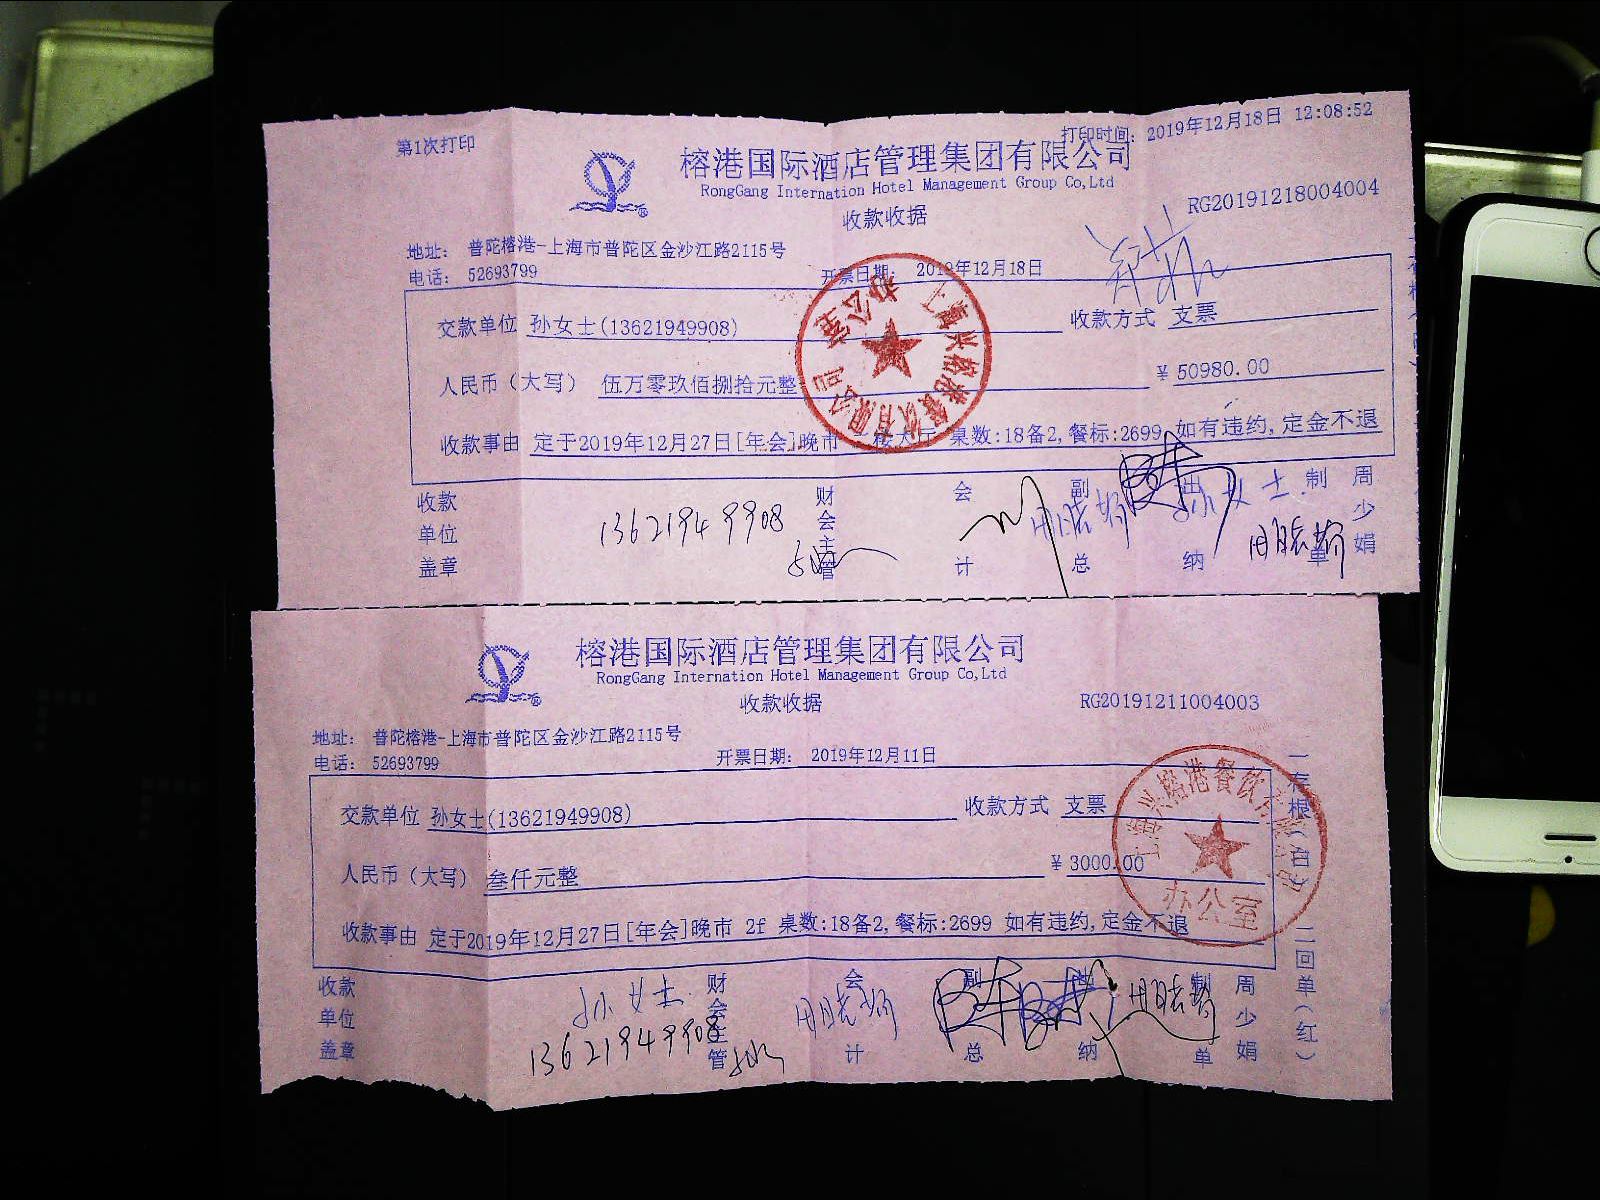 第1次打印
打印时间: 2019年12月18日 12:08:52
榕港国际酒店管理集团有限公司
RongGang Internation Hotel Management Group Co,Ltd
收款收据
RG20191218004004
地址: 普陀榕港-上海市普陀区金沙江路2115号
电话: 52693799
开票日期: 2019年12月18日
交款单位 孙女士(13621949908)
收款方式 支票
人民币（大写） 伍万零玖佰捌拾元整
¥ 50980.00
收款事由 定于2019年12月27日[年会]晚市 二楼大厅 桌数:18备2,餐标:2699 如有违约,定金不退
上海兴榕港餐饮有限公司
办公室
收款单位盖章
13621949908
财会主管
会计
副总
出纳
孙女士
制单
周少娟
榕港国际酒店管理集团有限公司
RongGang Internation Hotel Management Group Co,Ltd
收款收据
RG20191211004003
地址: 普陀榕港-上海市普陀区金沙江路2115号
电话: 52693799
开票日期: 2019年12月11日
交款单位 孙女士(13621949908)
收款方式 支票
人民币（大写） 叁仟元整
¥ 3000.00
收款事由 定于2019年12月27日[年会]晚市 2f 桌数:18备2,餐标:2699 如有违约,定金不退
上海兴榕港餐饮有限公司
办公室
一存根（白）
二回单（红）
收款单位盖章
孙女士
13621949908
财会主管
会计
副总
出纳
制单
周少娟